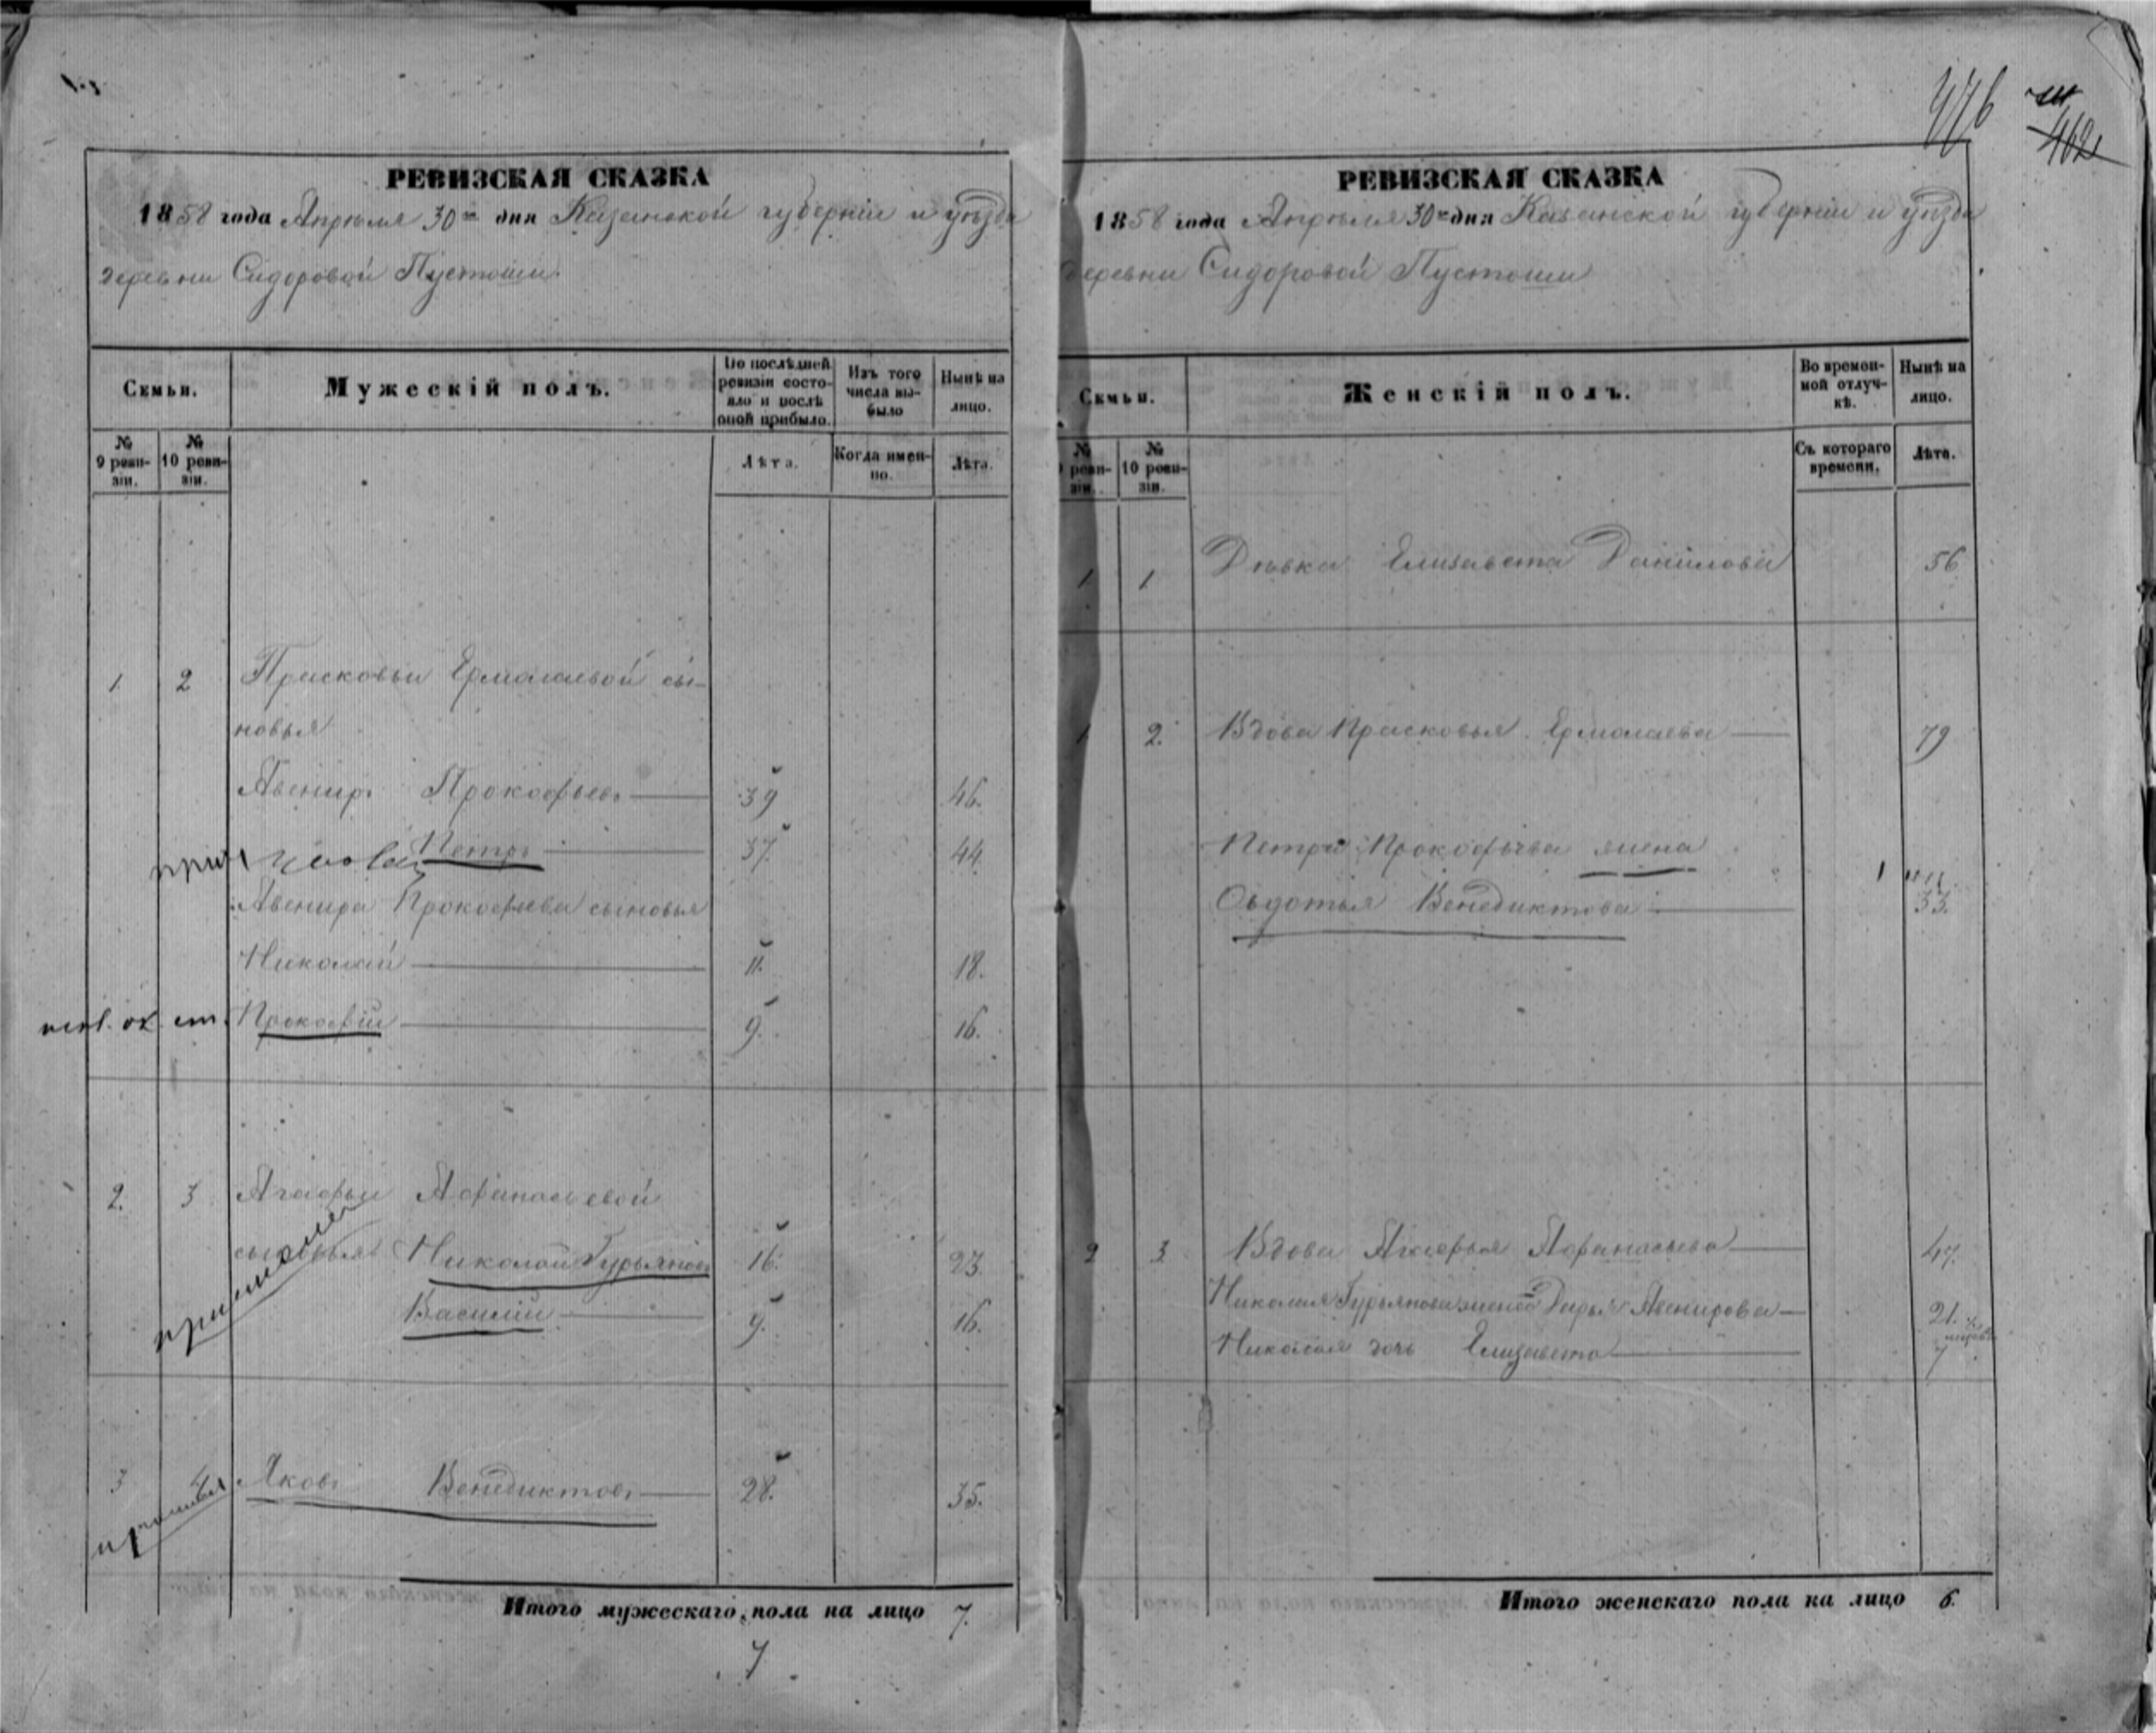 476
462
РЕВИЗСКАЯ СКАЗКА
1858 года Апрѣля 30го дня Казанской губерніи и уѣзда
деревни Сидоровой Пустоши
Семьи.
Мужескій полъ.
По послѣдней ревизіи состояло и послѣ оной прибыло.
Изъ того числа выбыло
Нынѣ на лицо.
№ 9 ревизіи.
№ 10 ревизіи.
Лѣта.
Когда именно.
Лѣта.
1 2 Прасковьи Ермолаевой сы-
новья
Авениръ Прокофьевъ 39 46.
Петръ 37. 44.
Авенира Прокофьева сыновья
Николай 11. 18.
Прокофій 9. 16.
2. 3 Агафьи Афанасьевой
сыновья Николай Гурьяновъ 16. 23.
Василій 9. 16.
пришолъ
3 4 Яковъ Венедиктовъ 28. 35.
Итого мужескаго пола на лицо 7.
7
РЕВИЗСКАЯ СКАЗКА
1858 года Апрѣля 30го дня Казанской губерніи и уѣзда
деревни Сидоровой Пустоши
Семьи.
Женскій полъ.
Во временной отлучкѣ.
Нынѣ на лицо.
№ 9 ревизіи.
№ 10 ревизіи.
Съ котораго времени.
Лѣта.
1 1 Дѣвка Елизавета Данилова 56
1 2. Вдова Прасковья Ермолаева 79
Петра Прокофьева жена
Овдотья Венедиктова 33.
2 3 Вдова Агафья Афанасьева 47.
Николая Гурьянова жена Дарья Авенирова 21.
Николая дочь Елизавета 7
Итого женскаго пола на лицо 6.